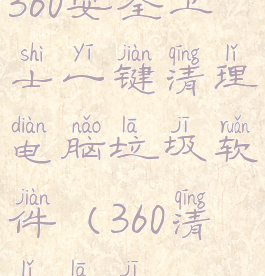 360安全卫
shì yī jiàn qīng lǐ
士一键清理
diàn nǎo lā jī ruǎn
电脑垃圾软
jiàn qīng
件(360清
lǐ lā jī